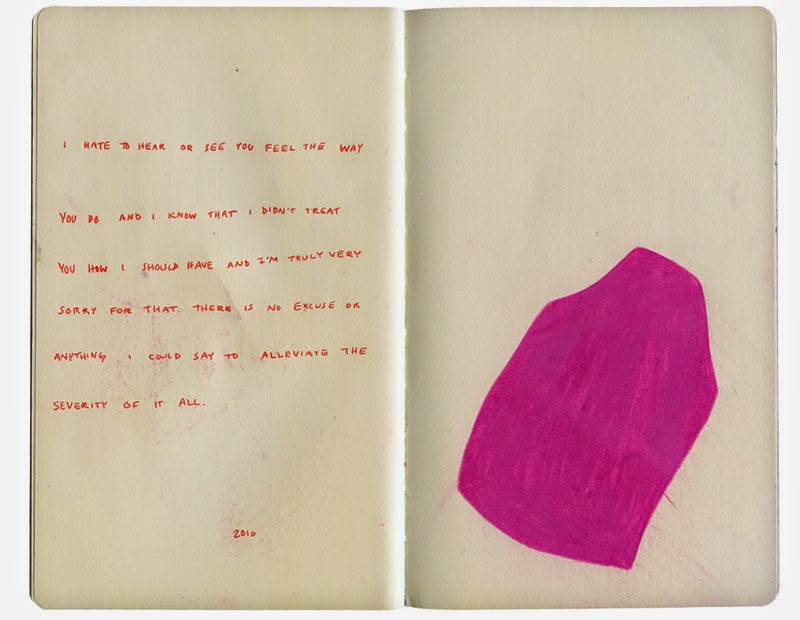 I HATE TO HEAR OR SEE YOU FEEL THE WAY
YOU DO AND I KNOW THAT I DIDN'T TREAT
YOU HOW I SHOULD HAVE AND I'M TRULY VERY
SORRY FOR THAT. THERE IS NO EXCUSE OR
ANYTHING I COULD SAY TO ALLEVIATE THE
SEVERITY OF IT ALL.
2010